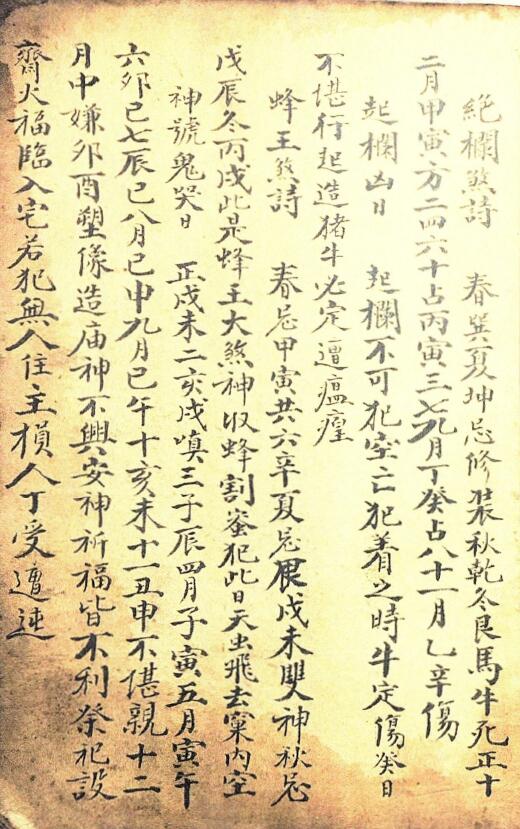 絶欄煞詩　春巽夏坤忌修裝秋乾冬艮馬牛死正十
二月甲寅方二四六十占丙寅三七九月丁癸占八十一月乙辛傷
起欄凶日　起欄不可犯空亡犯着之時牛定傷癸日
不堪行起造猪牛必定遭瘟瘴
蜂王煞詩　春忌甲寅共六辛夏忌戊未雙神秋忌
戊辰冬丙戌此是蜂王大煞神收蜂割蜜犯此日天虫飛去窠内空
神號鬼哭日　正戌未二亥戌嗔三子辰四月子寅五月寅午
六夘巳七辰巳八月巳申九月巳午十亥未十一丑申不堪親十二
月中嫌夘酉塑像造庙神不興安神祈福皆不利祭祀設
齋火福臨入宅若犯無人住主損人丁受遭迍